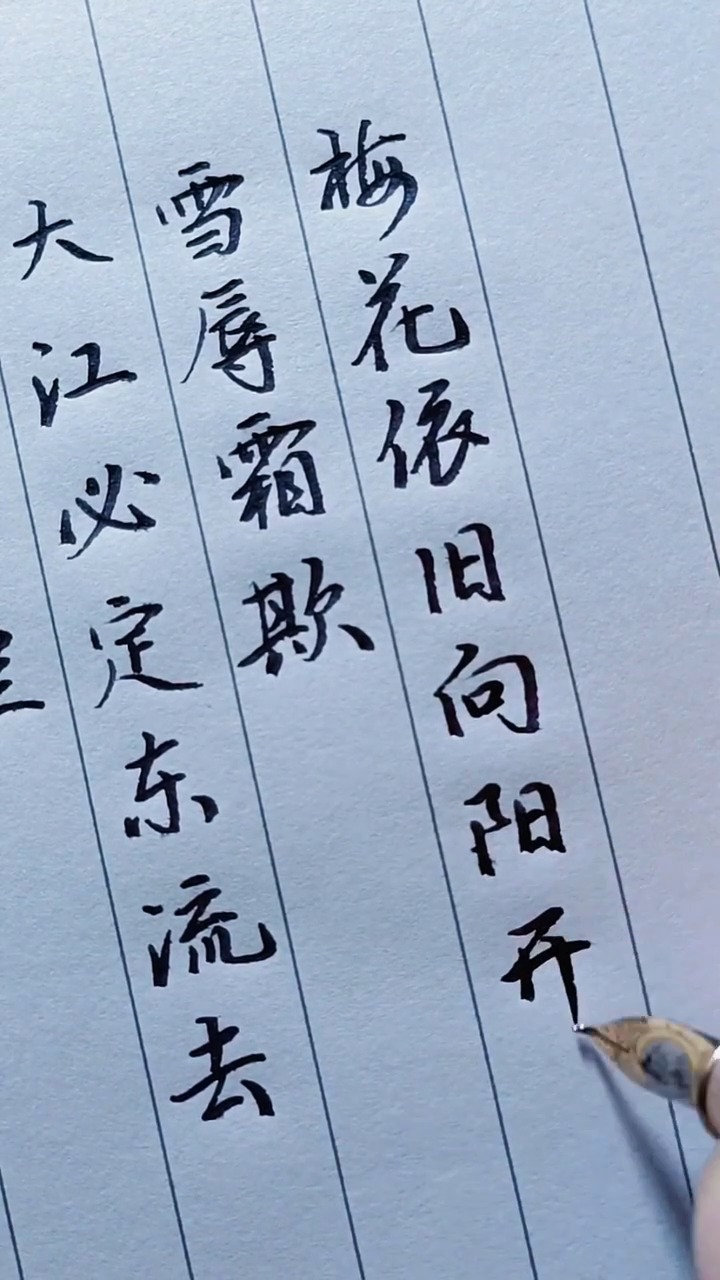 大江必定东流去
雪辱霜欺
梅花依旧向阳开